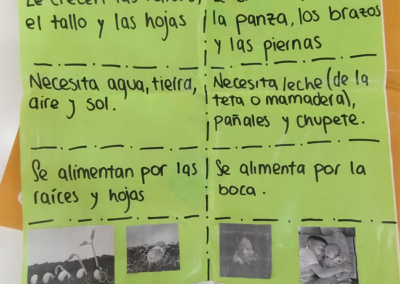 el tallo y las hojas
la panza, los brazos
y las piernas
Necesita agua, tierra,
aire y sol.
Necesita leche (de la
teta o mamadera),
pañales y chupete.
Se alimentan por las
raíces y hojas
Se alimenta por la
boca.